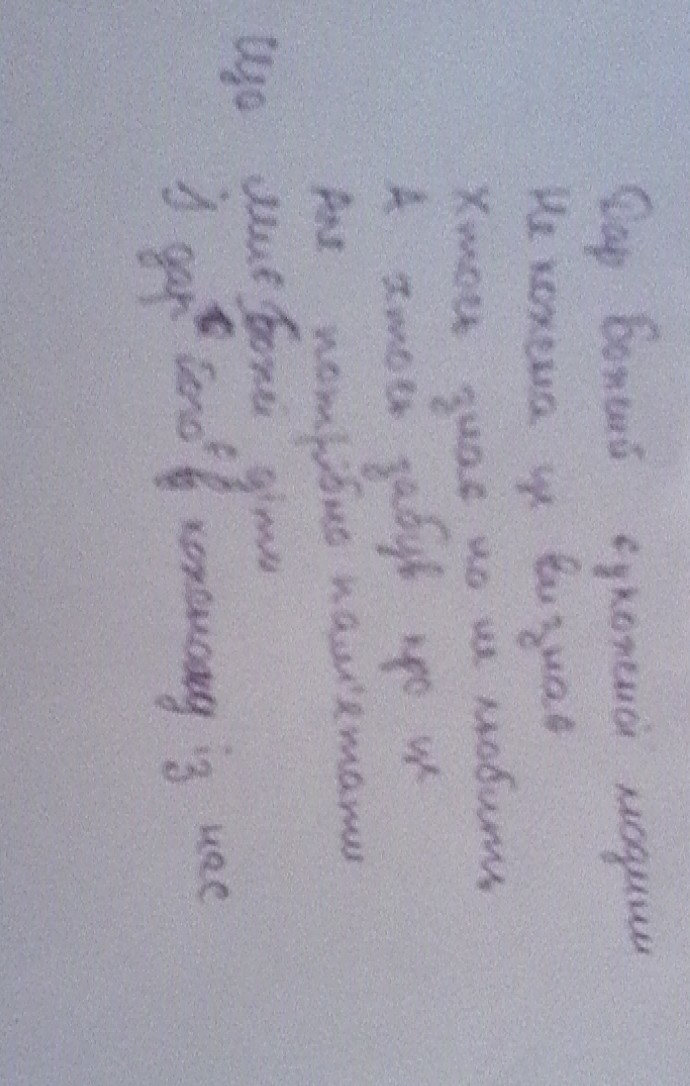 Дар Божий є у кожної людини
Не кожен це визнав
Хтось знає но не любить
А хтось забув про це
Але потрібно пам'ятати
Що ми є Божі діти
І дар його є в кожному із нас